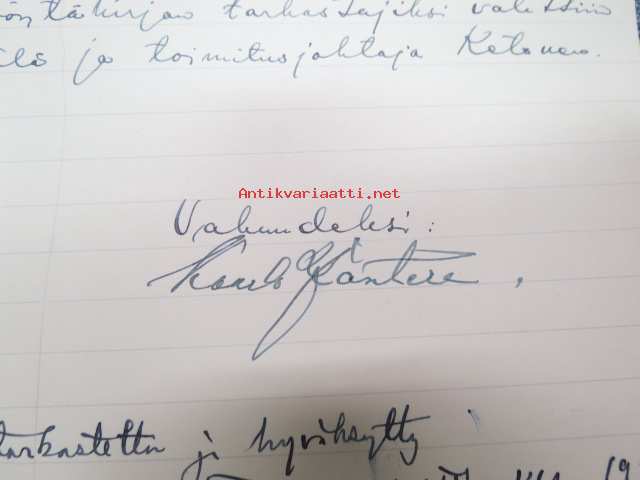 öytäkirjan tarkastajiksi valittiin
lä ja toimitusjohtaja Ketonen.
Antikvariaatti.net
Vakuudeksi:
Kantere.
tarkastettu ja hyväksytty